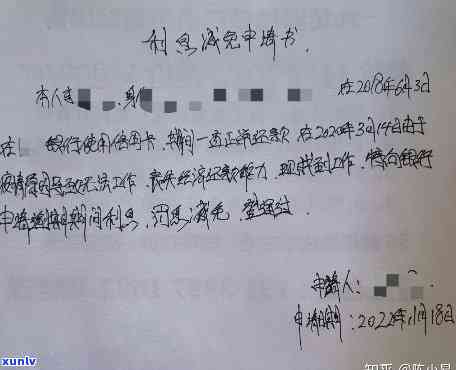 利息减免申请书.
本人 身 在2018年6月3日
在 银行使用信用卡,期间一直正常还款 在2020年3月14日由于
疫情原因导致无法工作,丧失经济还款能力,现找到工作,特向银行
申请逾期期间利息,罚息减免,望通过.
申请人:
申请日期:2022年11月18日
知乎 @陈小星
xunlv